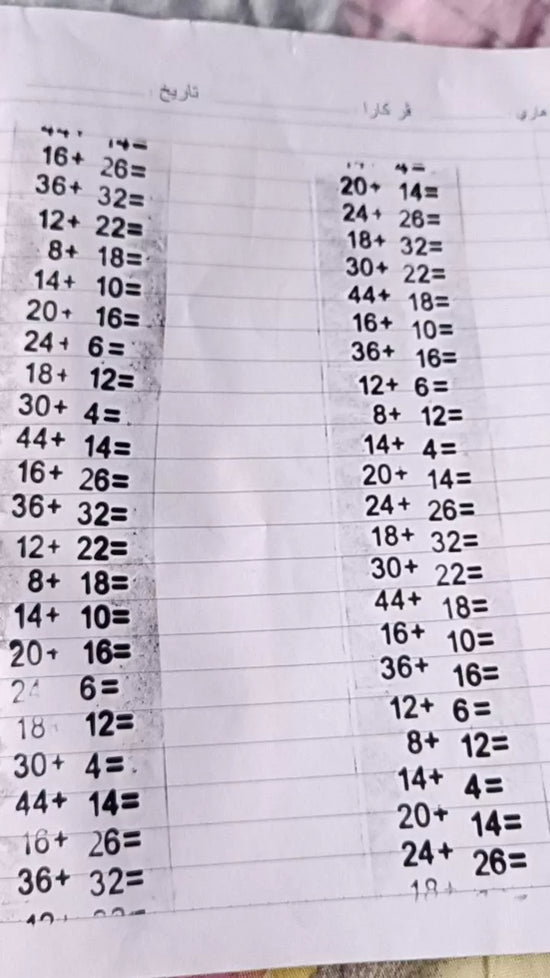 تاریخ
16+ 26=
36+ 32=
12+ 22=
8+ 18=
14+ 10=
20+ 16=
24+ 6=
18+ 12=
30+ 4=
44+ 14=
16+ 26=
36+ 32=
12+ 22=
8+ 18=
14+ 10=
20+ 16=
24 6=
18 12=
30+ 4=
44+ 14=
16+ 26=
36+ 32=
20+ 14=
24+ 26=
18+ 32=
30+ 22=
44+ 18=
16+ 10=
36+ 16=
12+ 6=
8+ 12=
14+ 4=
20+ 14=
24+ 26=
18+ 32=
30+ 22=
44+ 18=
16+ 10=
36+ 16=
12+ 6=
8+ 12=
14+ 4=
20+ 14=
24+ 26=
18+